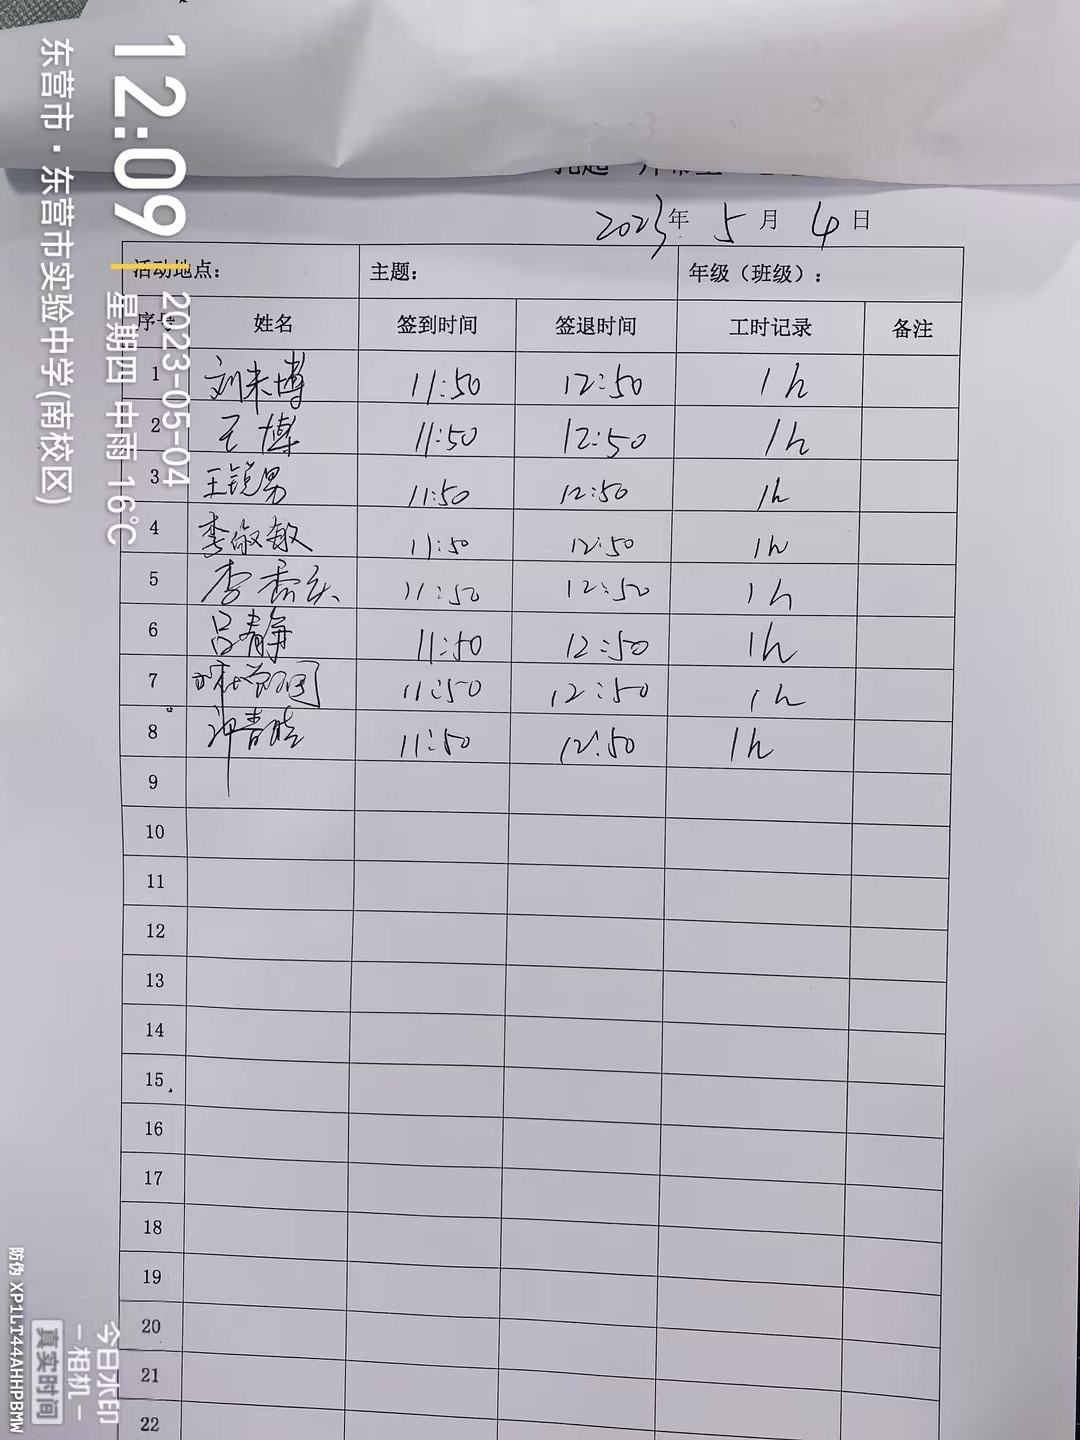 12:09
2023-05-04
星期四 中雨 16℃
东营市·东营市实验中学(南校区)
2023年 5月 4日
活动地点: 主题: 年级(班级):
序号 姓名 签到时间 签退时间 工时记录 备注
1 刘来博 11:50 12:50 1h
2 王博 11:50 12:50 1h
3 王锐男 11:50 12:50 1h
4 李敏敏 11:50 12:50 1h
5 李 11:50 12:50 1h
6 吕静 11:50 12:50 1h
7 11:50 12:50 1h
8 许青皓 11:50 12:50 1h
9
10
11
12
13
14
15
16
17
18
19
20
21
22
今日水印
相机
真实时间
防伪 XP1LT44AHHPBMW